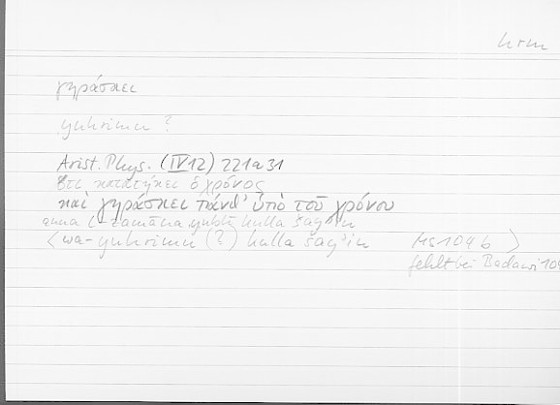 hrm
γηράσκει
yuhrimu ?
Arist. Phys. (IV 12) 221a31
ὅτι κατατήκει ὁ χρόνος
καὶ γηράσκει πάνθ' ὑπὸ τοῦ χρόνου
anna l-zamāna yublī kulla šayʾin
⟨wa-yuhrimu (?) kulla šayʾin Hs 104 b ⟩
fehlt bei Badawi